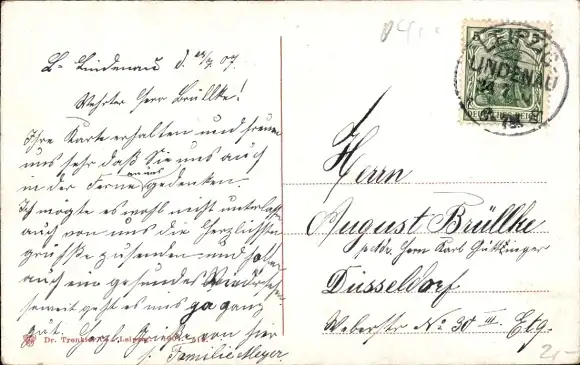 L- Lindenau d. 24/7 07.
Wehrter Herr Brüllke!
Ihre Karte erhalten und freuen
uns sehr daß Sie uns auch
in der Ferne an uns gedenken.
Ich möchte es wohl nicht unterlassen
auch von uns die Herzlichste
grüße zusenden und
auch ein gesundes Wiedersehen
soweit geht es uns ja ganz
gut. Grüße von hier
Familie Meyer.
Dr. Trenkler Co., Leipzig.
LEIPZIG
LINDENAU
24 7
Herrn
August Brüllke
p. adr. Herrn Karl Güttzinger
Düsseldorf
Weberstr No 30 III. Etg.
2,-